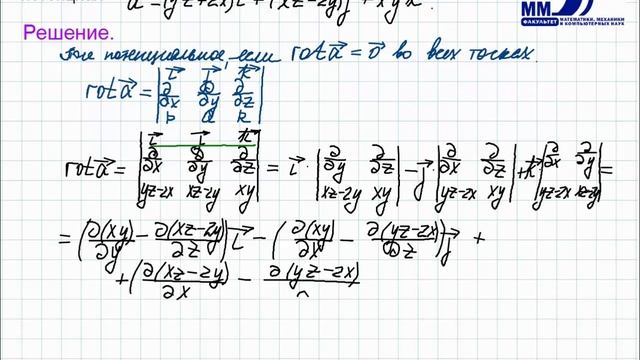 a = (yz+2x)i + (xz-2y)j + xyk.
ММ
ФАКУЛЬТЕТ
МАТЕМАТИКИ, МЕХАНИКИ
И КОМПЬЮТЕРНЫХ НАУК
Решение.
Поле потенциальное, если rot a⃗ = 0⃗ во всех точках.
rot a⃗ = | i⃗ j⃗ k⃗ |
| ∂/∂x ∂/∂y ∂/∂z |
| P Q R |
rot a⃗ = | i⃗ j⃗ k⃗ ; ∂/∂x ∂/∂y ∂/∂z ; yz-2x xz-2y xy | = i⃗ · | ∂/∂y ∂/∂z ; xz-2y xy | - j⃗ | ∂/∂x ∂/∂z ; yz-2x xy | + k⃗ | ∂/∂x ∂/∂y ; yz-2x xz-2y | =
= (∂(xy)/∂y - ∂(xz-2y)/∂z) i⃗ - (∂(xy)/∂x - ∂(yz-2x)/∂z) j⃗ +
+ (∂(xz-2y)/∂x - ∂(yz-2x)